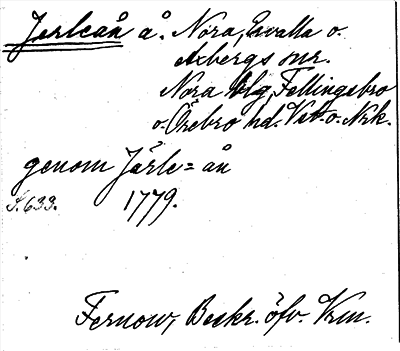 Jerleån å. Nora, Ervalla o.
Axbergs snr.
Nora blg, Fellingsbro
o. Örebro hd. Vstm. o. Nrk.
genom Järle=ån
S. 633. 1779.
Fernow, Beskr. öfv. Vrm.